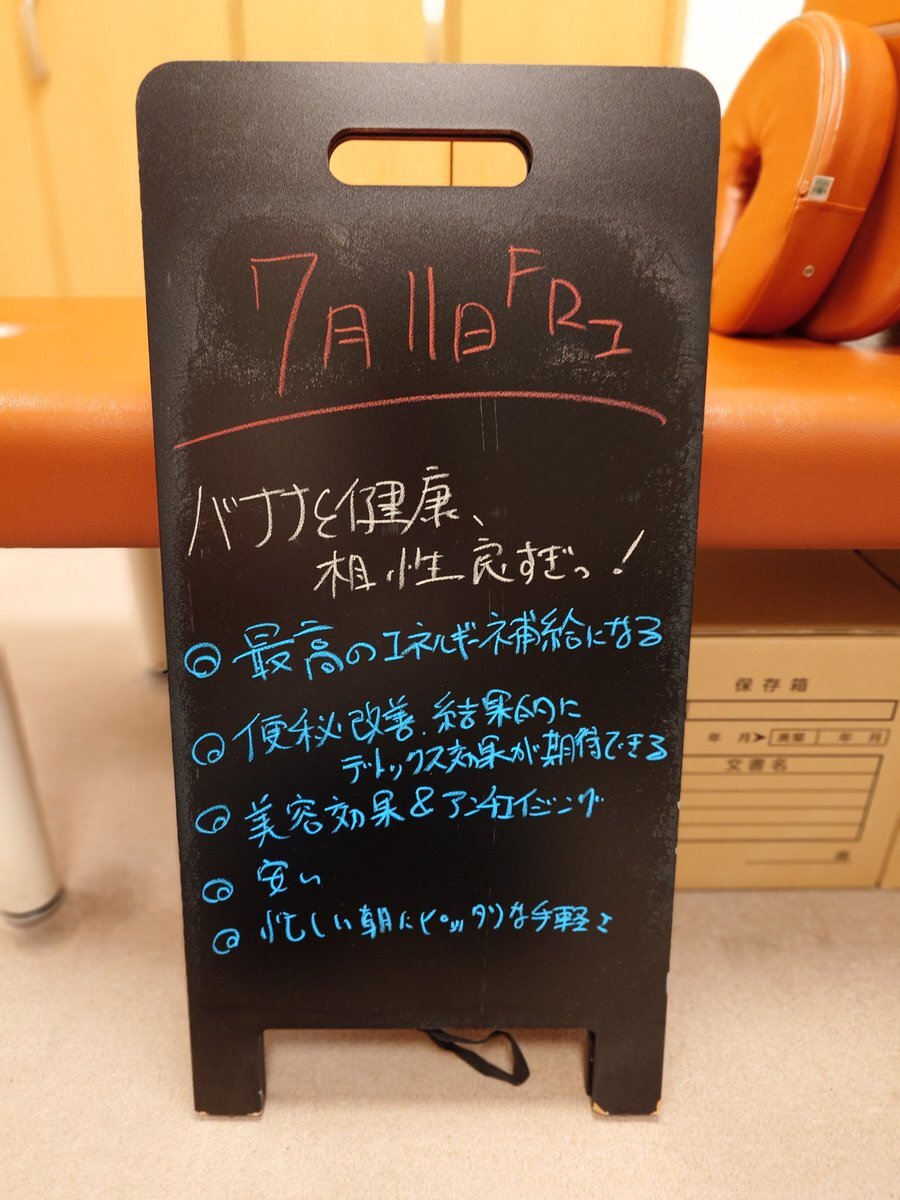 7月11日 FRI
バナナと健康、
相性良すぎっ!
◎最高のエネルギー補給になる
◎便秘改善.結果的に
デトックス効果が期待できる
◎美容効果&アンチエイジング
◎安い
◎忙しい朝にピッタリな手軽さ
保存箱
年 月➤ 廃棄 年 月
文書名